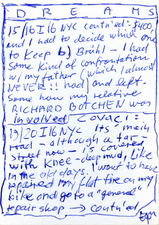 D R E A M S
15/16 I 16 NYC contn'd: $400,
and I had to decide which one
to keep b) Brühl - I had
some kind of confrontation
w/my father (which I almost
NEVER!! had) and left.
Some how my relative
RICHARD BOTCHEN was
involved
19/20 I 16 NYC Its main
road - although a fat
street now - covered
with knee-deep mud, like
in the old days. I want to have
repaired my flat tire on my
bike and go to a "general"
repair shop → contn'd